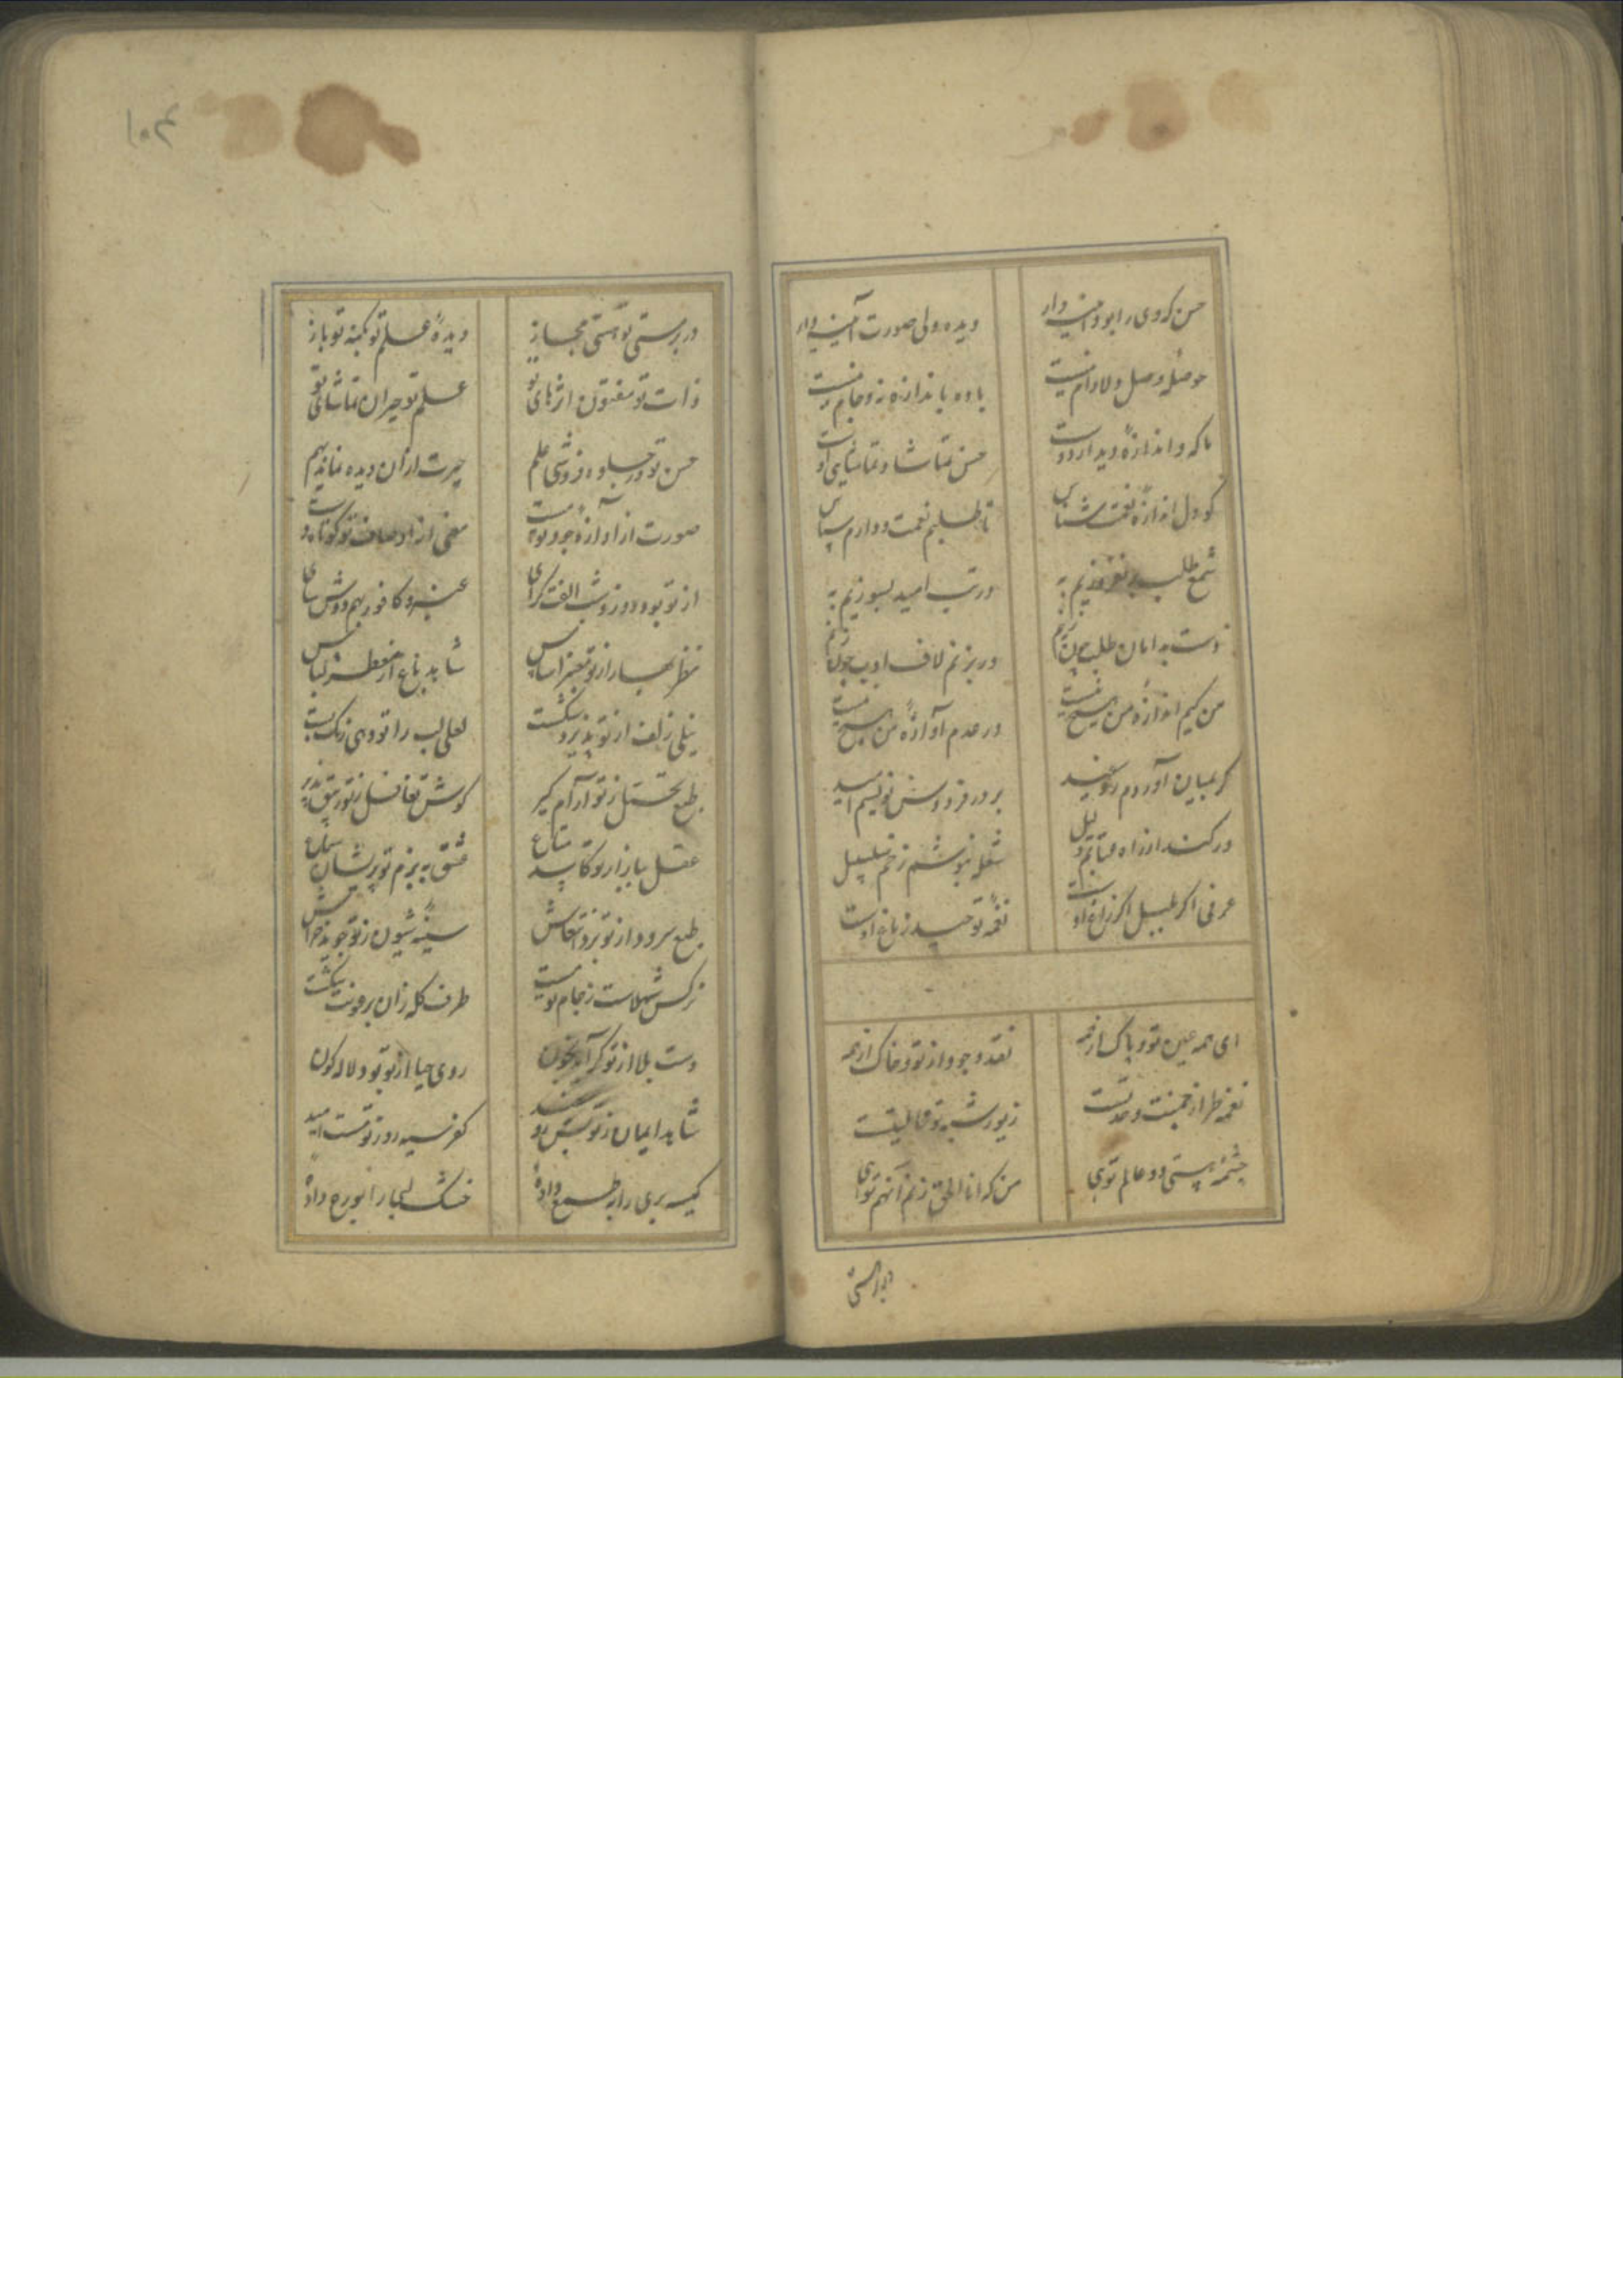 حسن که وی را بود آیینه دار
دیده ولی صورت آیینه دار
حوصله وصل دلارام نیست
باده باندازه نه و جام نیست
ما که و اندازه دیدار دوست
حسن تماشا و تماشایی اوست
کو دل اندازه نعمت شناس
تا طلبیم نعمت و دارم سپاس
شمع طلب بر نفروزیم به
در تب امید بسوزیم به
دست به دامان طلب چون زنم
ور نزنم لاف ادب چون زنم
من کیم اندازه من هیچ نیست
در عدم آوازه من هیچ نیست
گر بمیان آوردم
بر در فردوس نویسم امید
ور کند از راه عتابم دلیل
شعله بنوشم زخم سلسبیل
عرفی اگر بلبل اگر زاغ اوست
نغمه توحید زن باغ اوست
ای همه عین تو و پاک از همه
نقد وجود از تو و خاک از همه
نغمه طراز وحدتست
زیور
چشمه هستی دو عالم تویی
من که انا الحق زنم آنهم تویی
در بر هستی تو هستی مجاز
دیده علم تو بکنه تو باز
ذات تو مفتون اثرهای تو
علم تو حیران تماشای تو
حسن تو در جلوه فروشی علم
حیرت از آن دیده
صورت از آوازه جود تو مست
معنی از اوصاف تو کوتاه دست
از تو بود روز و شب الفت گرای
عنبر و کافور بهم دوش سای
مغز بهار از تو
شاهد باغ از تو معطر لباس
نیلی زلف از تو پذیرد شکست
لعلی لب را تو دهی رنگ بست
طبع تحمل ز تو آرام گیر
گوش تغافل ز تو
عقل ببازار تو کاسد متاع
عشق به بزم تو پریشان سماع
طبع سرود از تو برد انتعاش
سینه شیون ز تو جوید خراش
نرگس شهلاست ز جام تو مست
طرف کله زان برعونت شکست
دست بلا از تو گر آید بخون
روی حیا از تو بود لاله گون
شاهد ایمان ز تو
کفر سیه روز تو هست امید
کیسه بری را به طمع داده
خشک لبی را بورع داده
در بر هستی
۱۰۴